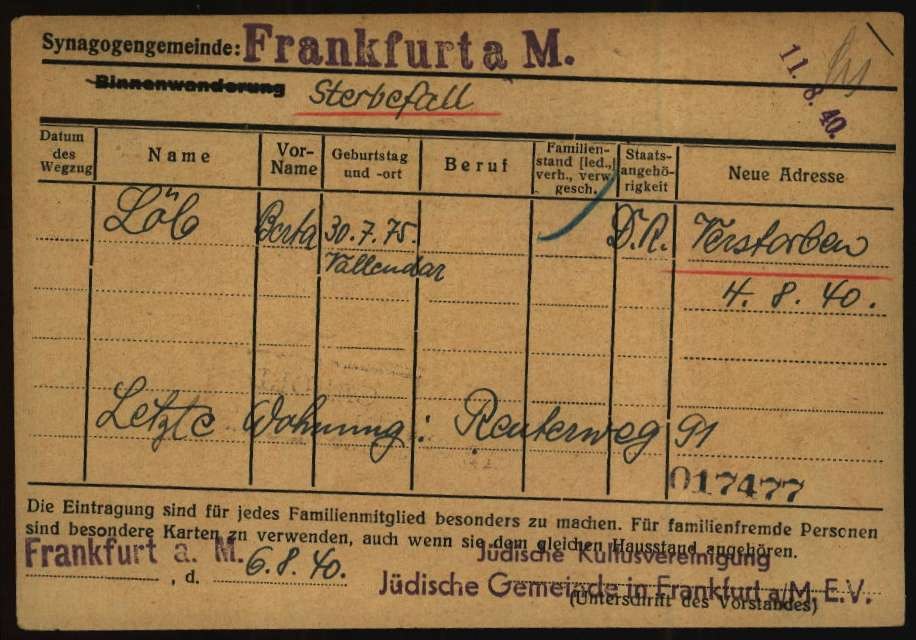 Synagogengemeinde: Frankfurt a M.
11. 8. 40.
Binnenwanderung Sterbefall
Datum des Wegzug
Name
Vor-Name
Geburtstag und -ort
Beruf
Familien-stand [led., verh., verw. gesch.
Staats-angehö-rigkeit
Neue Adresse
Löb Berta 30.7.75. D.R. Verstorben
Vallendar
4. 8. 40.
Letzte Wohnung: Reuterweg 91
017477
Die Eintragung sind für jedes Familienmitglied besonders zu machen. Für familienfremde Personen
sind besondere Karten zu verwenden, auch wenn sie dem gleichen Hausstand angehören.
Frankfurt a. M. , d. 6.8.40.
Jüdische Kultusvereinigung
Jüdische Gemeinde in Frankfurt a/M. E.V.
(Unterschrift des Vorstandes)